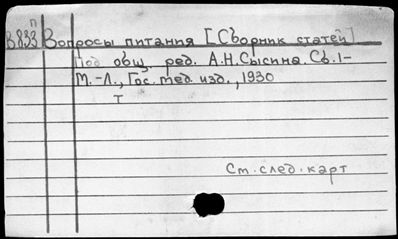 п
В833 Вопросы питания [Сборник статей]
Под общ. ред. А.Н.Сысина. Сб.1-
М.-Л., Гос. мед. изд., 1930
т
См. след. карт